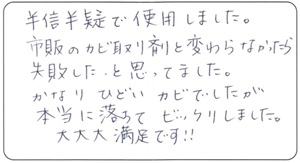 半信半疑で使用しました。
市販のカビ取り剤と変わらなかったら
失敗した。と思ってました。
かなり ひどい カビでしたが
本当に落ちて ビックリしました。
大大大満足です!!